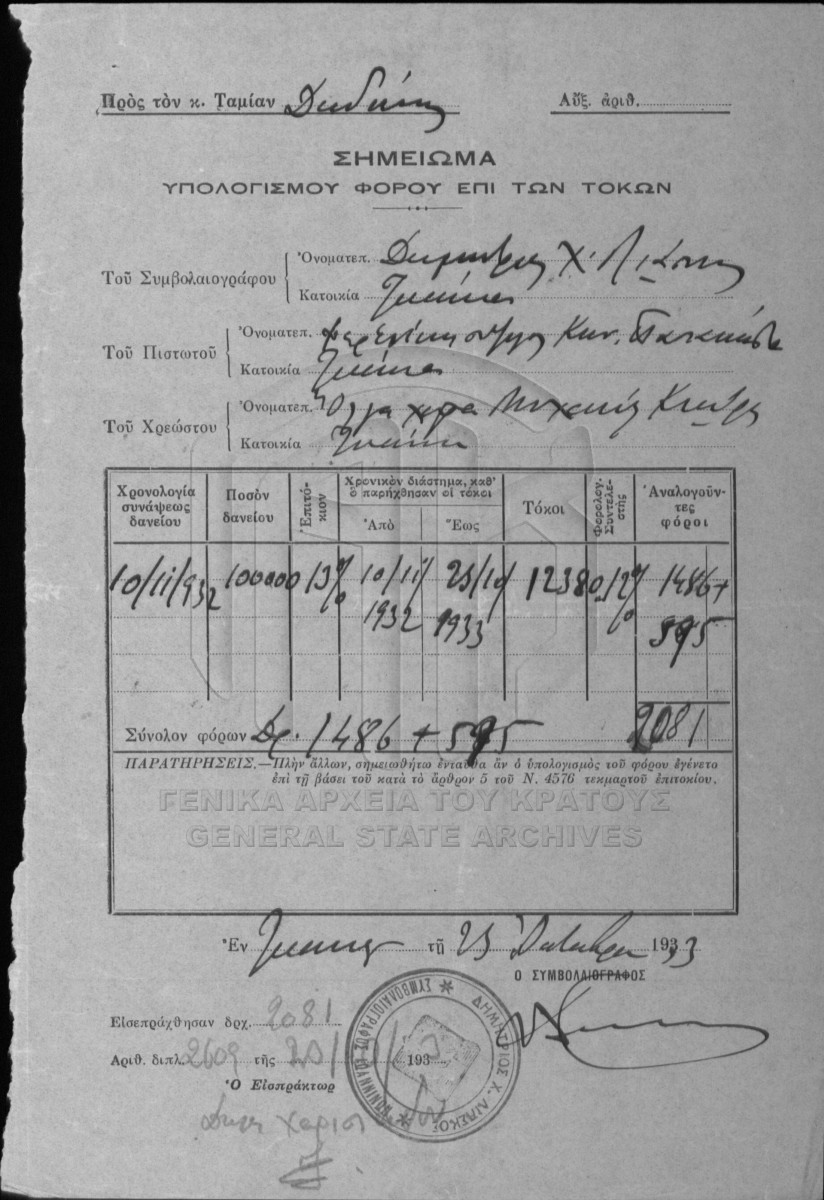 Πρὸς τὸν κ. Ταμίαν
Αὔξ. ἀριθ.
ΣΗΜΕΙΩΜΑ
ΥΠΟΛΟΓΙΣΜΟΥ ΦΟΡΟΥ ΕΠΙ ΤΩΝ ΤΟΚΩΝ
Τοῦ Συμβολαιογράφου
Ὀνοματεπ. Δημήτριος Χ.
Κατοικία
Τοῦ Πιστωτοῦ
Ὀνοματεπ.
Κατοικία
Τοῦ Χρεώστου
Ὀνοματεπ. Ὄλγα χήρα
Κατοικία
Χρονολογία συνάψεως δανείου
Ποσὸν δανείου
Ἐπιτόκιον
Χρονικὸν διάστημα, καθ' ὃ παρήχθησαν οἱ τόκοι
Ἀπὸ
Ἕως
Τόκοι
Φορολογ. Συντελεστὴς
Ἀναλογοῦντες φόροι
10/11/932 100000 13% 10/11/1932 23/10/1933 12380 12% 1486+
595
Σύνολον φόρων Δρ. 1486 + 595 2081
ΠΑΡΑΤΗΡΗΣΕΙΣ.—Πλὴν ἄλλων, σημειωθήτω ἐνταῦθα ἂν ὁ ὑπολογισμὸς τοῦ φόρου ἐγένετο
ἐπὶ τῇ βάσει τοῦ κατὰ τὸ ἄρθρον 5 τοῦ Ν. 4576 τεκμαρτοῦ ἐπιτοκίου.
ΓΕΝΙΚΑ ΑΡΧΕΙΑ ΤΟΥ ΚΡΑΤΟΥΣ
GENERAL STATE ARCHIVES
Ἐν τῇ 23 1933
Ο ΣΥΜΒΟΛΑΙΟΓΡΑΦΟΣ
Εἰσεπράχθησαν δρχ. 2081
Ἀριθ. διπλ. 2609 τῆς 193
Ὁ Εἰσπράκτωρ
ΔΗΜΗΤΡΙΟΣ Χ. ΛΙΠΕΚΟΣ
ΣΥΜΒΟΛΑΙΟΓΡΑΦΟΣ ΙΩΑΝΝΙΝΩΝ